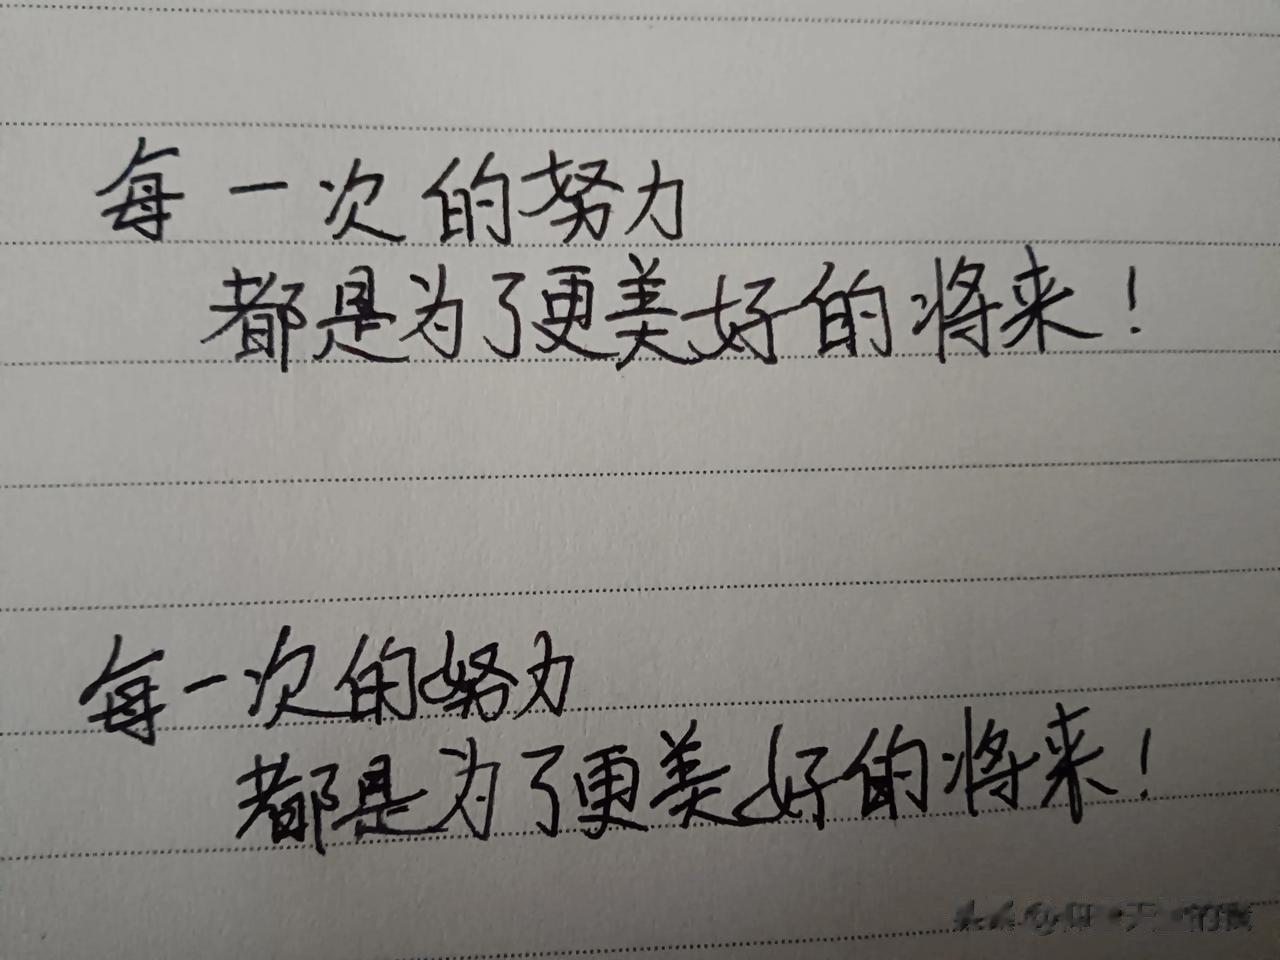 每一次的努力
都是为了更美好的将来！
每一次的努力
都是为了更美好的将来！
头条@